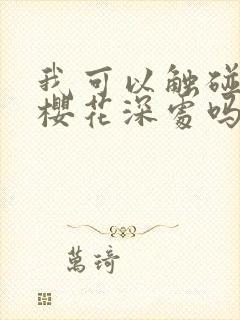 我可以触碰
樱花深处吗
萬琦